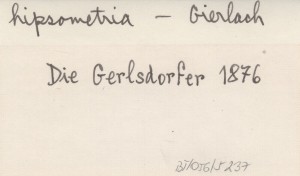 hipsometria — Gierlach
Die Gerlsdorfer 1876